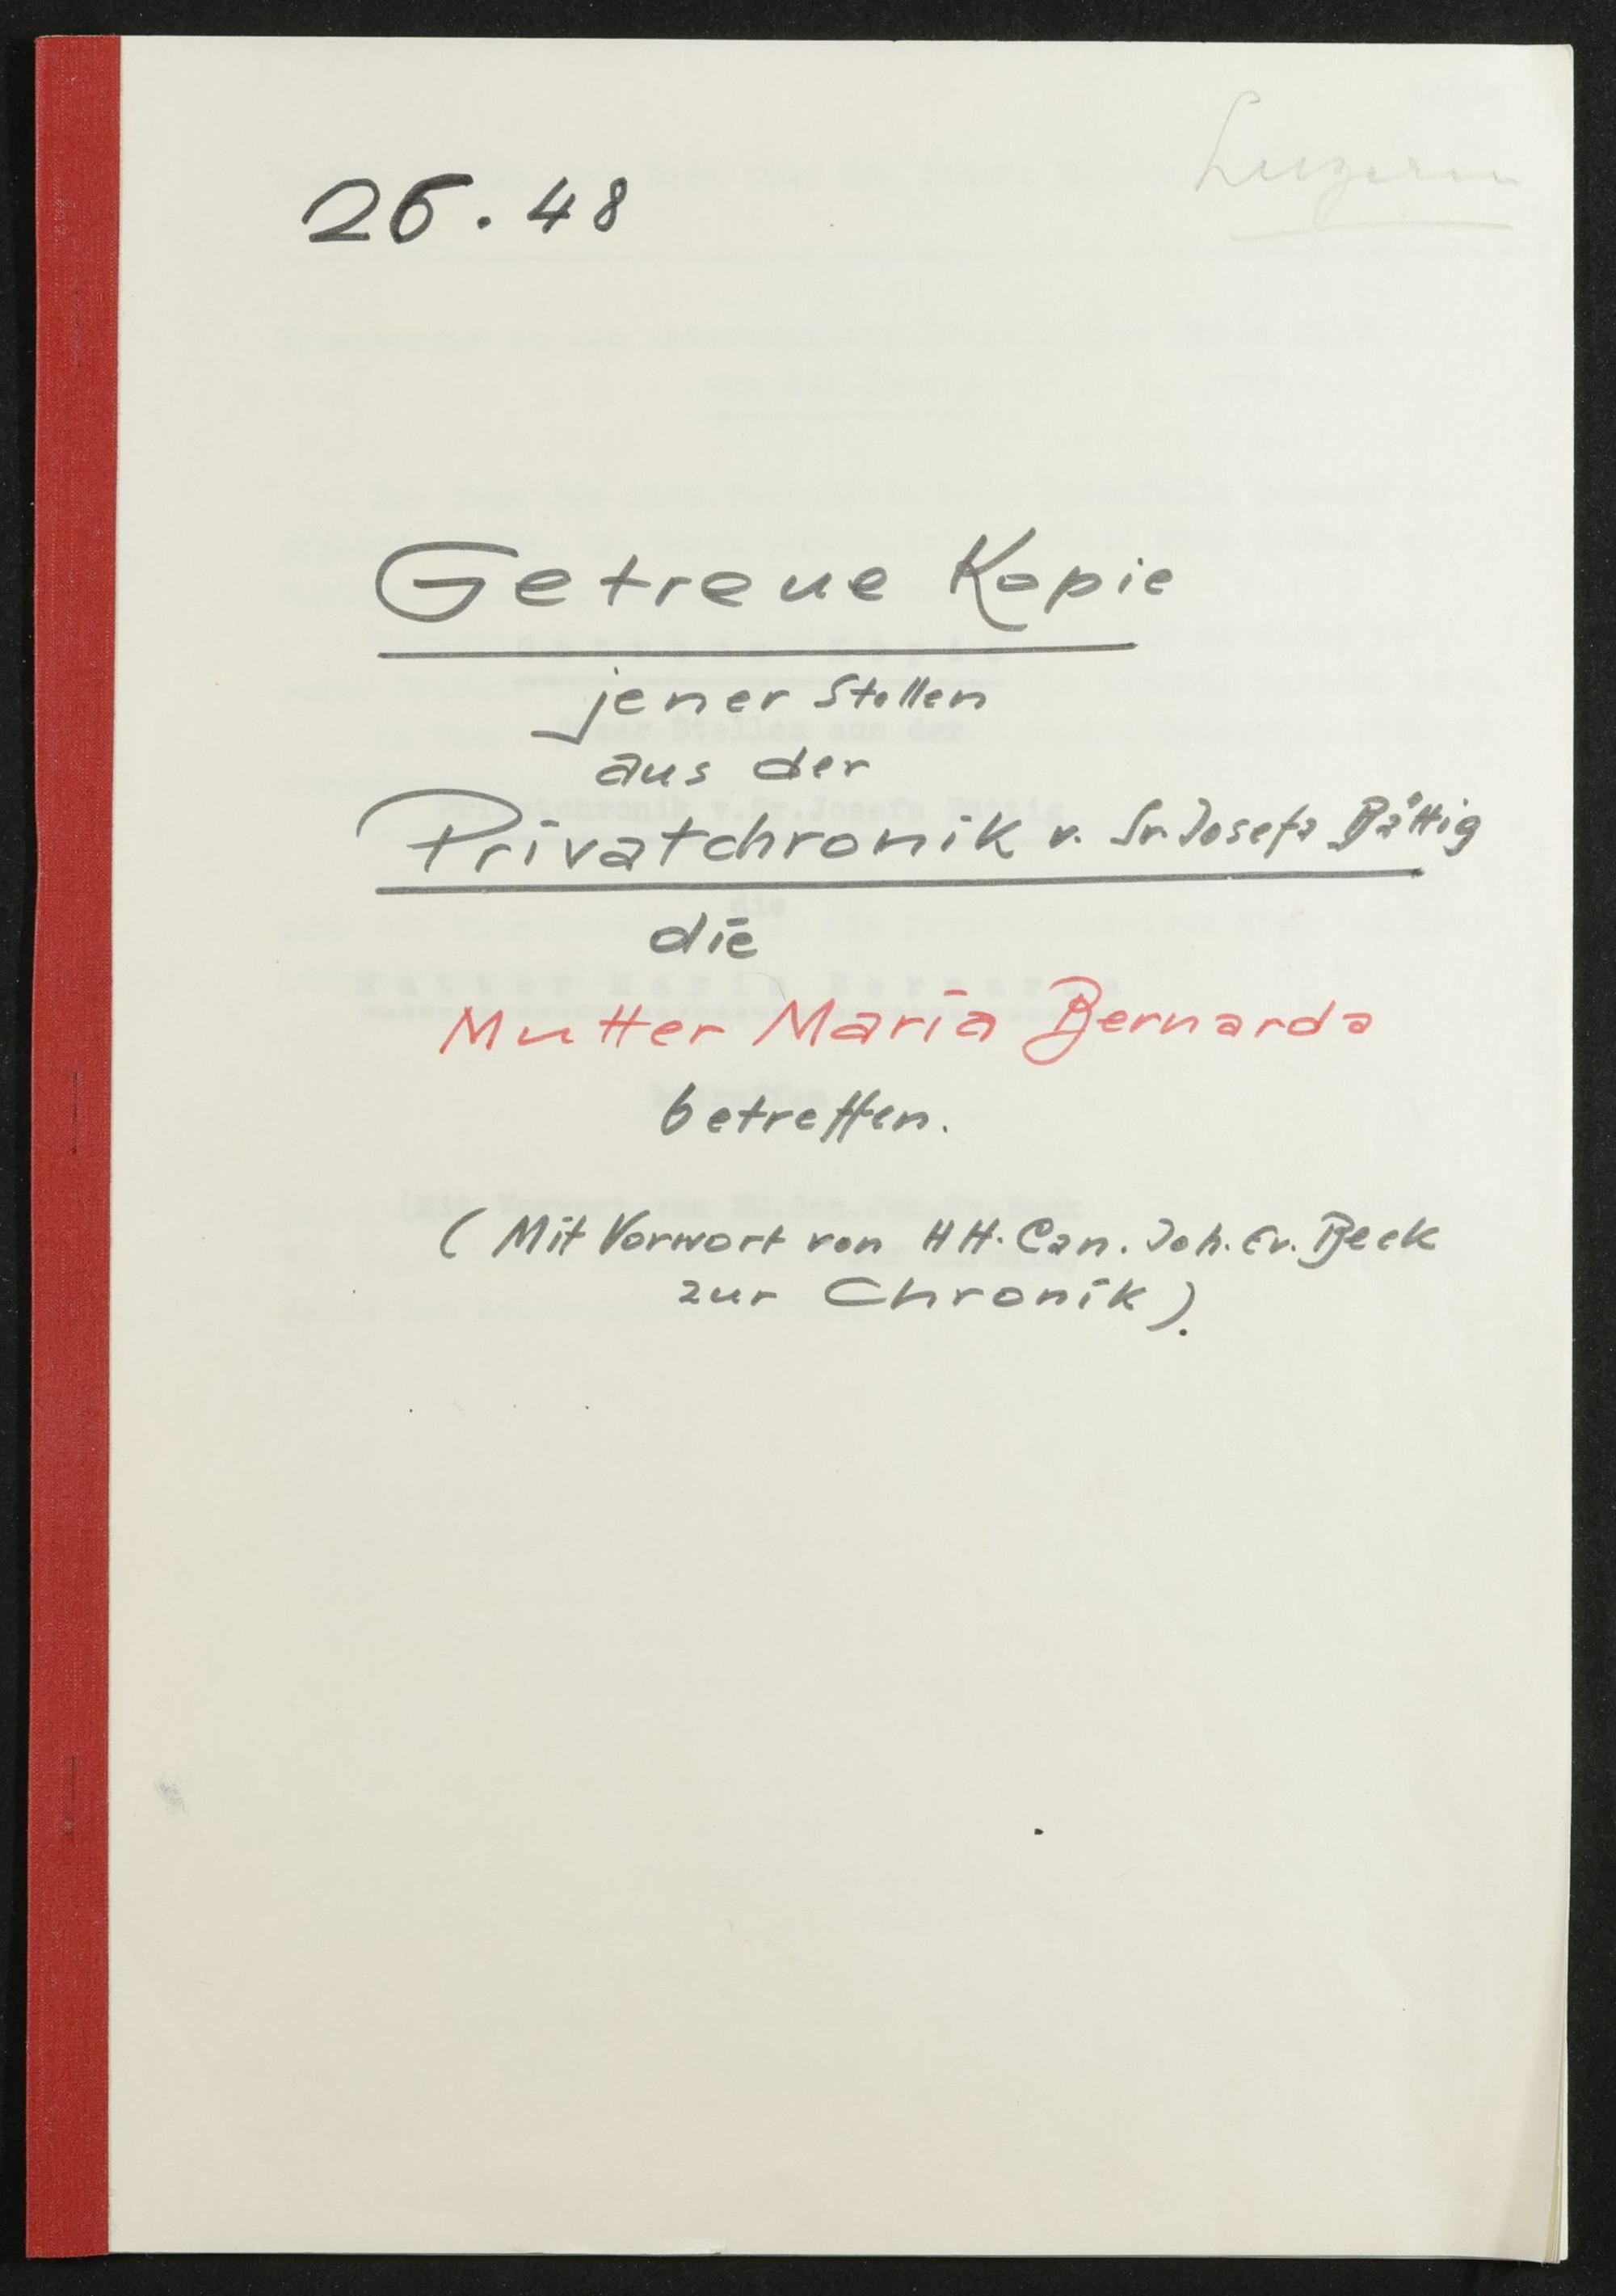 Luzern
26.48
Getreue Kopie
jener Stellen
aus der
Privatchronik v. Sr. Josefa Bättig
die
Mutter Maria Bernarda
betreffen.
(Mit Vorwort von HH. Can. Joh. Ev. Beck
zur Chronik).